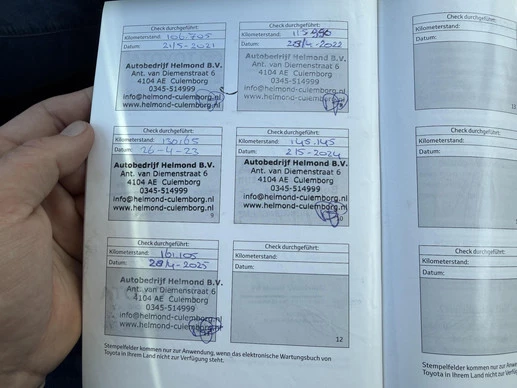 Check durchgeführt:
Kilometerstand: 106.705
Datum: 21/5-2021
Autobedrijf Helmond B.V.
Ant. van Diemenstraat 6
4104 AE Culemborg
0345-514999
info@helmond-culemborg.nl
www.helmond-culemborg.nl
Check durchgeführt:
Kilometerstand:
Datum: 28/4-2022
Autobedrijf Helmond B.V.
Ant. van Diemenstraat 6
4104 AE Culemborg
0345-514999
info@helmond-culemborg.nl
www.helmond-culemborg.nl
Check durchgeführt:
Kilometerstand: 130165
Datum: 26-4-23
Autobedrijf Helmond B.V.
Ant. van Diemenstraat 6
4104 AE Culemborg
0345-514999
info@helmond-culemborg.nl
www.helmond-culemborg.nl
9
Check durchgeführt:
Kilometerstand: 145.145
Datum: 2/5-2024
Autobedrijf Helmond B.V.
Ant. van Diemenstraat 6
4104 AE Culemborg
0345-514999
info@helmond-culemborg.nl
www.helmond-culemborg.nl
10
Check durchgeführt:
Kilometerstand: 161.105
Datum: 28/4-2025
Autobedrijf Helmond B.V.
Ant. van Diemenstraat 6
4104 AE Culemborg
0345-514999
info@helmond-culemborg.nl
www.helmond-culemborg.nl
Check durchgeführt:
Kilometerstand:
Datum:
12
Stempelfelder kommen nur zur Anwendung, wenn das elektronische Wartungsbuch von
Toyota in Ihrem Land nicht zur Verfügung steht.
Kilometerstand:
Datum:
Check durchgeführt:
Kilometerstand:
Datum:
Check durchgeführt:
Kilometerstand:
Datum:
Stempelfelder kommen nur zur
Toyota in Ihrem Land nicht zur Verfü